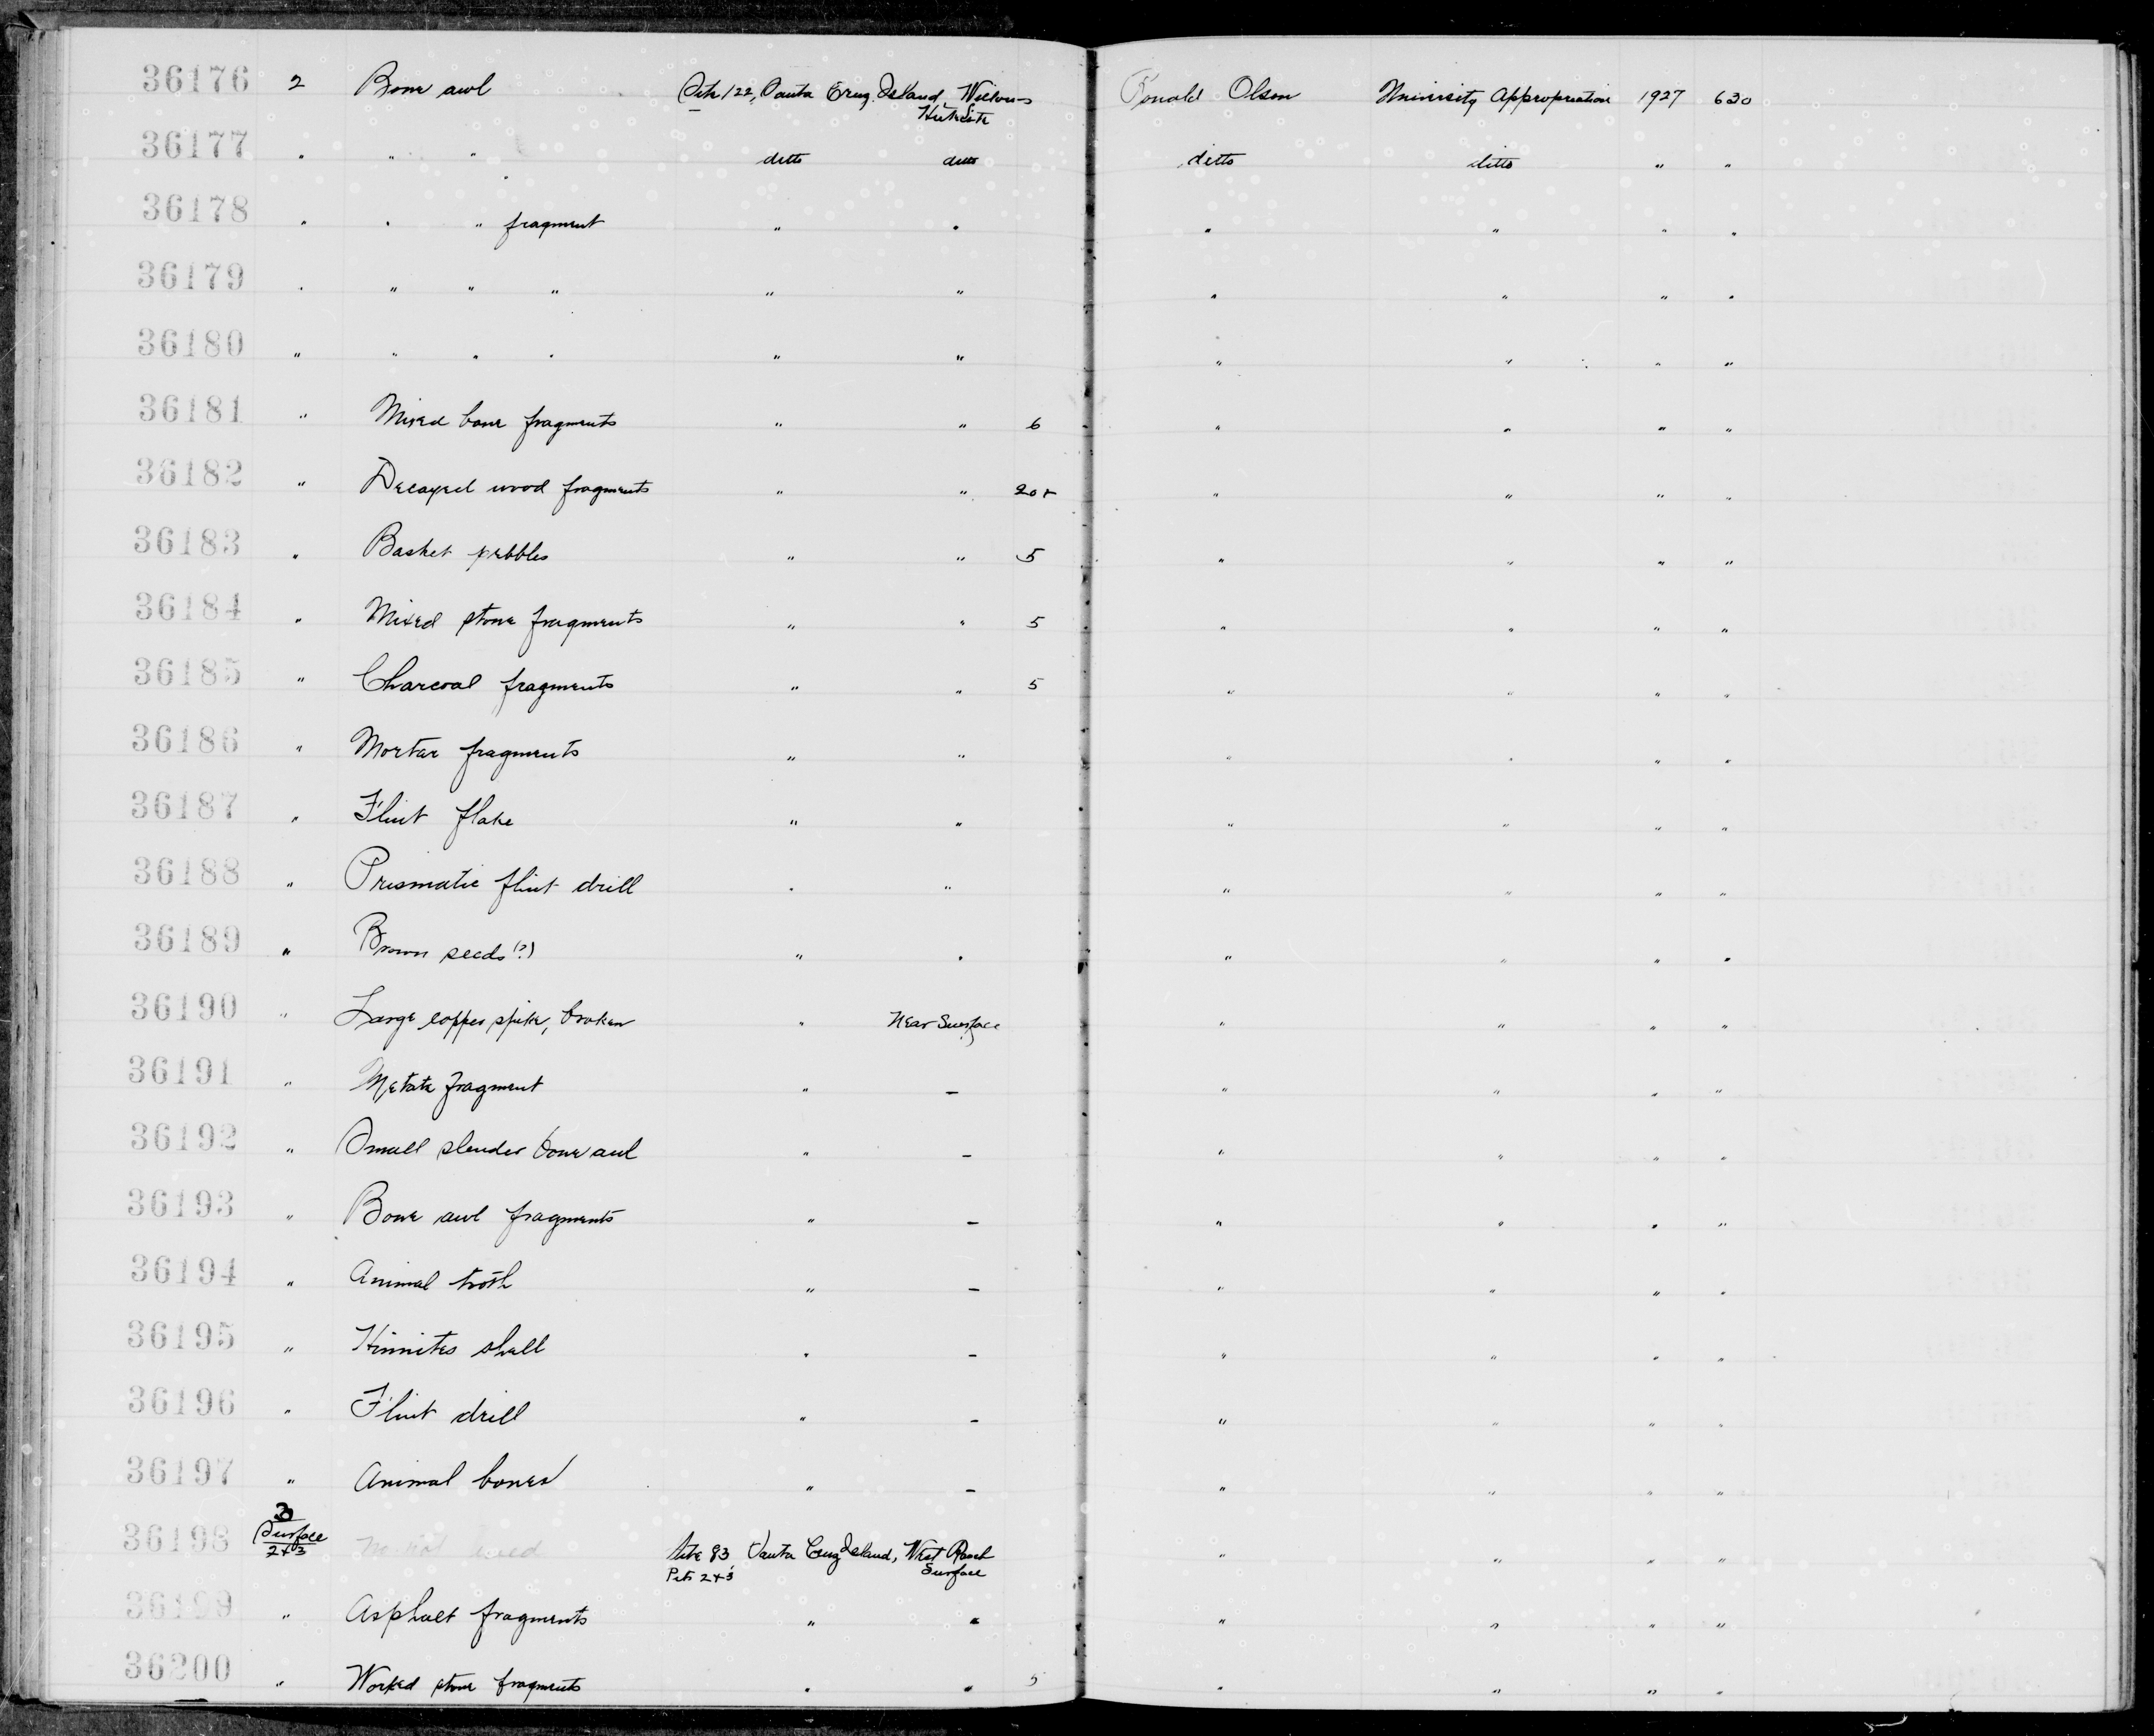 36176 2 Bone awl Site 122, Santa Cruz Island, Ronald Olson University Appropriation 1927 630
36177 " " " ditto ditto ditto ditto " "
36178 " " " fragment " " " " " "
36179 " " " " " " " " " "
36180 " " " " " " " " " "
36181 " Mixed bone fragments " " 6 " " " "
36182 " Decayed wood fragments " " 20+ " " " "
36183 " Basket pebbles " " 5 " " " "
36184 " Mixed stone fragments " " 5 " " " "
36185 " Charcoal fragments " " 5 " " " "
36186 " Mortar fragments " " " " " "
36187 " Flint flake " " " " " "
36188 " Prismatic flint drill " " " " " "
36189 " Brown seeds (?) " " " " " "
36190 " Large copper spike, broken " Near Surface " " " "
36191 " Metate fragment " – " " " "
36192 " Small slender bone awl " – " " " "
36193 " Bone awl fragments " – " " " "
36194 " Animal tooth " – " " " "
36195 " Hinnites shell " – " " " "
36196 " Flint drill " – " " " "
36197 " Animal bones " – " " " "
36198 3 Surface 2+3 Site 83 Santa Cruz Island, West Ranch " " " "
Pits 2+3 Surface
36199 " Asphalt fragments " " " " " "
36200 " Worked stone fragments " " 5 " " " "